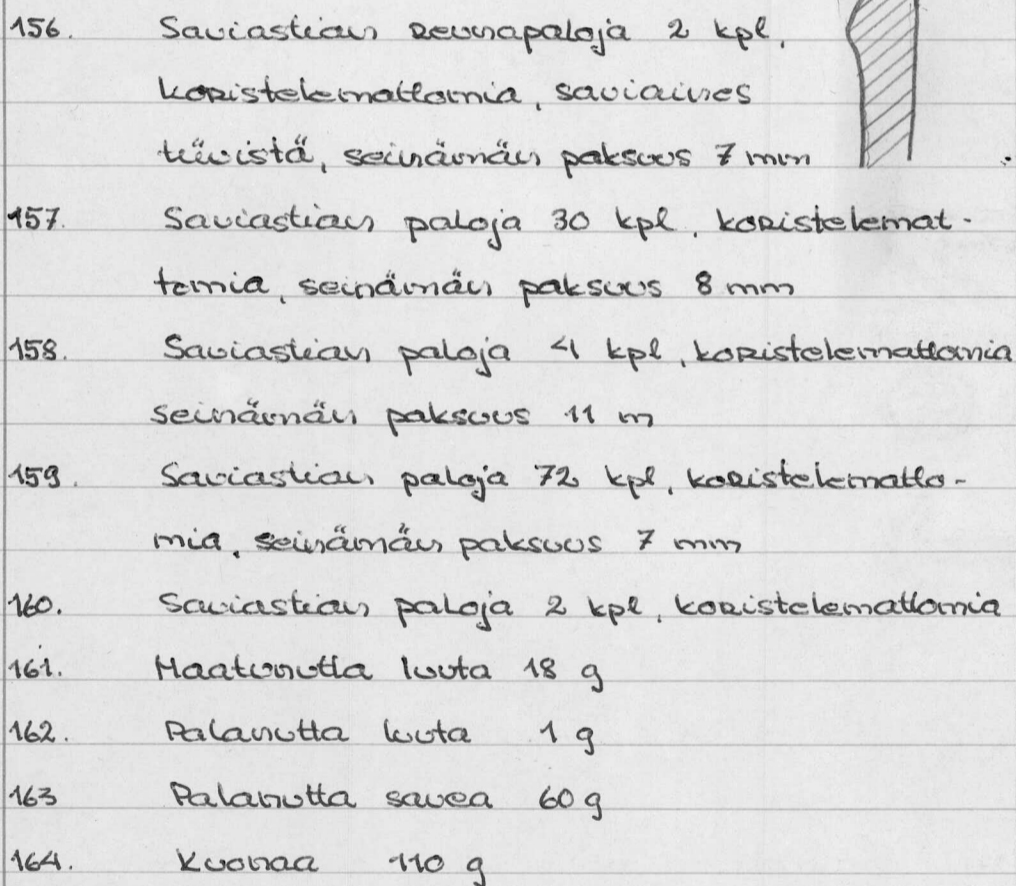 156. Saviastian reunapaloja 2 kpl,
koristelemattomia, saviaines
tiivistä, seinämän paksuus 7 mm
157. Saviastian paloja 30 kpl, koristelemat-
tomia, seinämän paksuus 8 mm
158. Saviastian paloja 4 kpl, koristelemattomia
seinämän paksuus 11 m
159. Saviastian paloja 72 kpl, koristelematto-
mia, seinämän paksuus 7 mm
160. Saviastian paloja 2 kpl, koristelemattomia
161. Maatunutta luuta 18 g
162. Palanutta luuta 1 g
163 Palanutta savea 60 g
164. Kuonaa 110 g